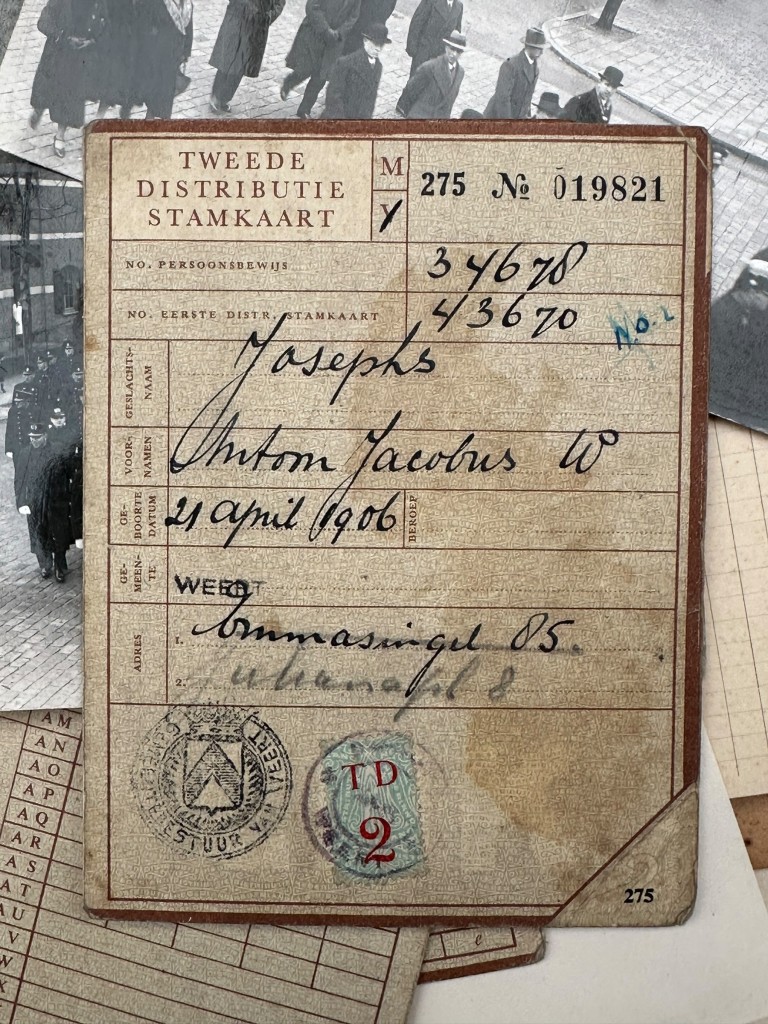 TWEEDE
DISTRIBUTIE
STAMKAART
M
V
275 № 019821
NO. PERSOONSBEWIJS
34678
NO. EERSTE DISTR. STAMKAART
43670
N.O.
GESLACHTS-
NAAM
Josephs
VOOR-
NAMEN
Antom Jacobus W
GE-
BOORTE
DATUM
21 april 1906
BEROEP
GE-
MEEN-
TE
WEERT
ADRES
1.
Emmasingel 85.
2.
Julianapl 8
GEMEENTEBESTUUR VAN WEERT
TD
2
275
AM
AN
AO
AP
AQ
AR
AS
AT
AU
V
W
X
e